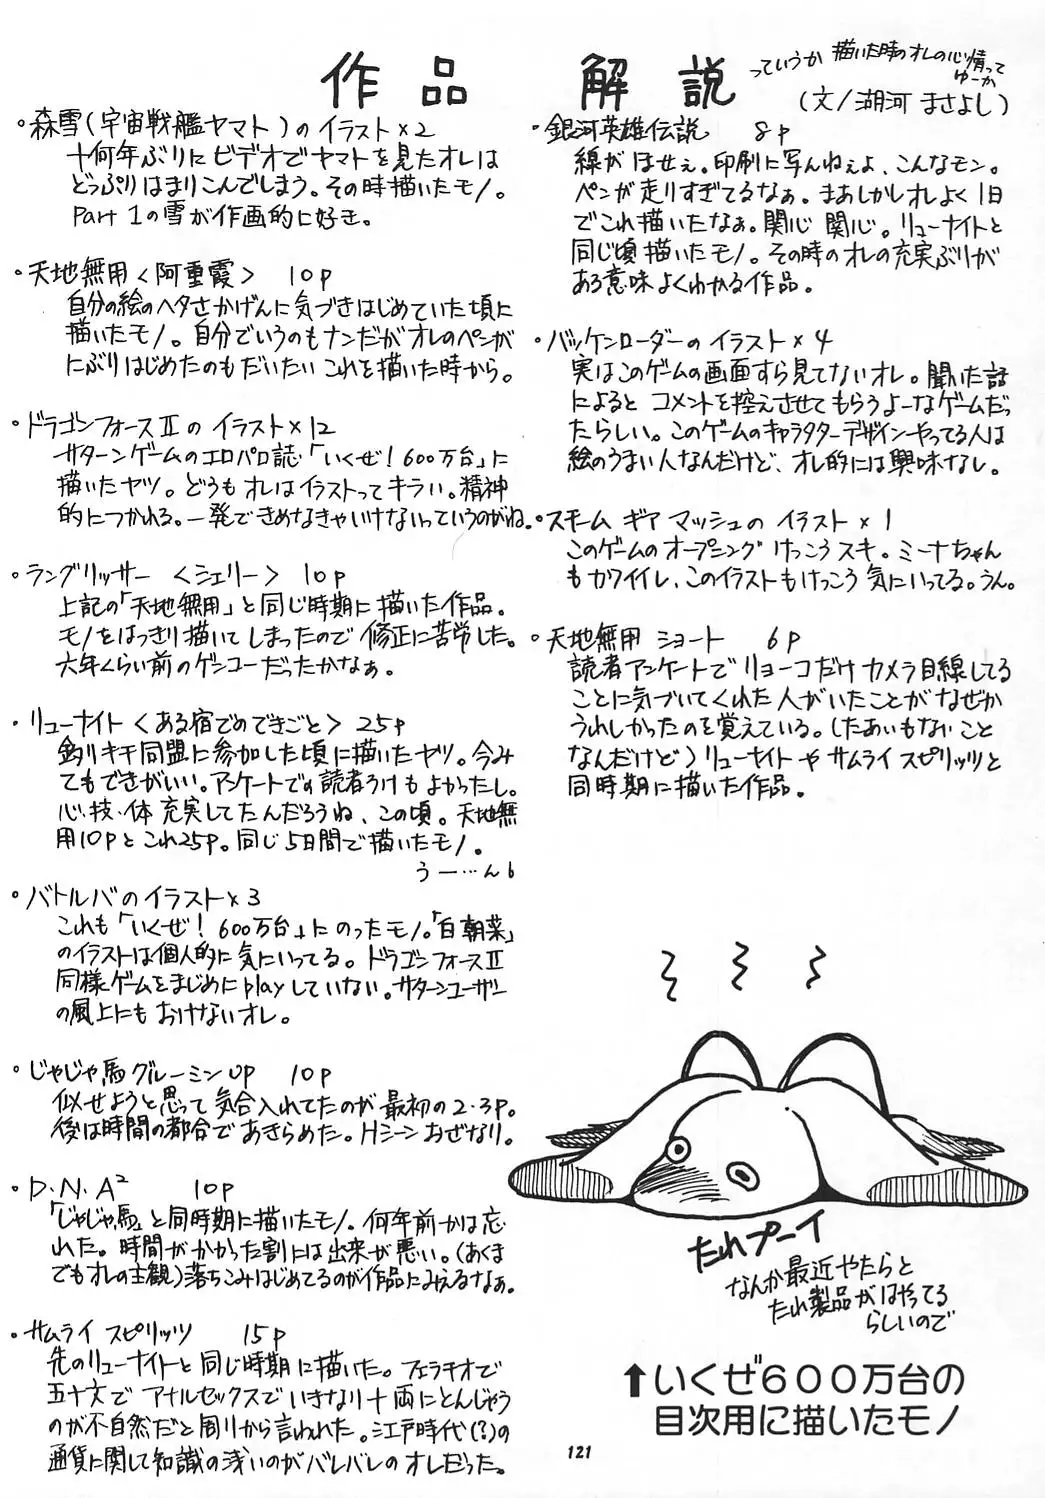 作品 解説
っていうか 描いた時のオレの心情って
ゆーか
(文/湖河 まさよし)
・森雪(宇宙戦艦ヤマト)のイラスト×2
十何年ぶりにビデオでヤマトを見たオレは
どっぷりはまりこんでしまう。その時描いたモノ。
Part 1の雪が作画的に好き。
・天地無用<阿重霞> 10p
自分の絵のヘタさかげんに気づきはじめていた頃に
描いたモノ。自分でいうのもナンだがオレのペンが
にぶりはじめたのもだいたいこれを描いた時から。
・ドラゴンフォースIIのイラスト×12
サターンゲームのエロパロ誌「いくぜ!600万台」に
描いたヤツ。どうもオレはイラストってキライ。精神
的につかれる。一発できめなきゃいけないっていうのがね。
・ラングリッサー <シェリー> 10p
上記の「天地無用」と同じ時期に描いた作品。
モノをはっきり描いてしまったので修正に苦労した。
六年くらい前のゲンコーだったかなぁ。
・リューナイト<ある宿でのできごと> 25p
釣りキチ同盟に参加した頃に描いたヤツ。今み
てもできがいい。アンケートでの読者うけもよかったし。
心・技・体 充実してたんだろうね、この頃。天地無
用10pとこれ25p。同じ5日間で描いたモノ。
うー…ん
・バトルバのイラスト×3
これも「いくぜ!600万台」にのったモノ。「白朝菜」
のイラストは個人的に気にいってる。ドラゴンフォースII
同様ゲームをまじめにplayしていない。サターンユーザー
の風上にもおけないオレ。
・じゃじゃ馬グルーミンUP 10p
似せようと思って気合入れてたのが最初の2・3p。
後は時間の都合であきらめた。Hシーンおざなり。
・D・N・A² 10p
「じゃじゃ馬」と同時期に描いたモノ。何年前かは忘
れた。時間がかかった割には出来が悪い。(あくま
でもオレの主観)落ちこみはじめてるのが作品にみえるなぁ。
・サムライスピリッツ 15p
先のリューナイトと同じ時期に描いた。フェラチオで
五十文でアナルセックスでいきなり十両にとんじゃう
のが不自然だと周りから言われた。江戸時代(?)の
通貨に関して知識の浅いのがバレバレのオレだった。
・銀河英雄伝説 8p
線がほせぇ。印刷に写んねぇよ、こんなモン。
ペンが走りすぎてるなぁ。まあしかしオレよく1日
でこれ描いたなぁ。関心 関心。リューナイトと
同じ頃描いたモノ。その時のオレの充実ぶりが
ある意味よくわかる作品。
・バッケンローダーのイラスト×4
実はこのゲームの画面すら見てないオレ。聞いた話
によると コメントを控えさせてもらうよーなゲームだっ
たらしい。このゲームのキャラクターデザインやってる人は
絵のうまい人なんだけど、オレ的には興味なし。
・スチーム ギア マッシュのイラスト×1
このゲームのオープニングけっこうスキ。ミーナちゃん
もカワイイし、このイラストもけっこう気にいってる。うん。
・天地無用 ショート 6p
読者アンケートでリョーコだけカメラ目線してる
ことに気づいてくれた人がいたことがなぜか
うれしかったのを覚えている。(たあいもないこと
なんだけど)リューナイトやサムライスピリッツと
同時期に描いた作品。
たれプーイ
なんか最近やたらと
たれ製品がはやってる
らしいので
↑いくぜ600万台の
目次用に描いたモノ
121